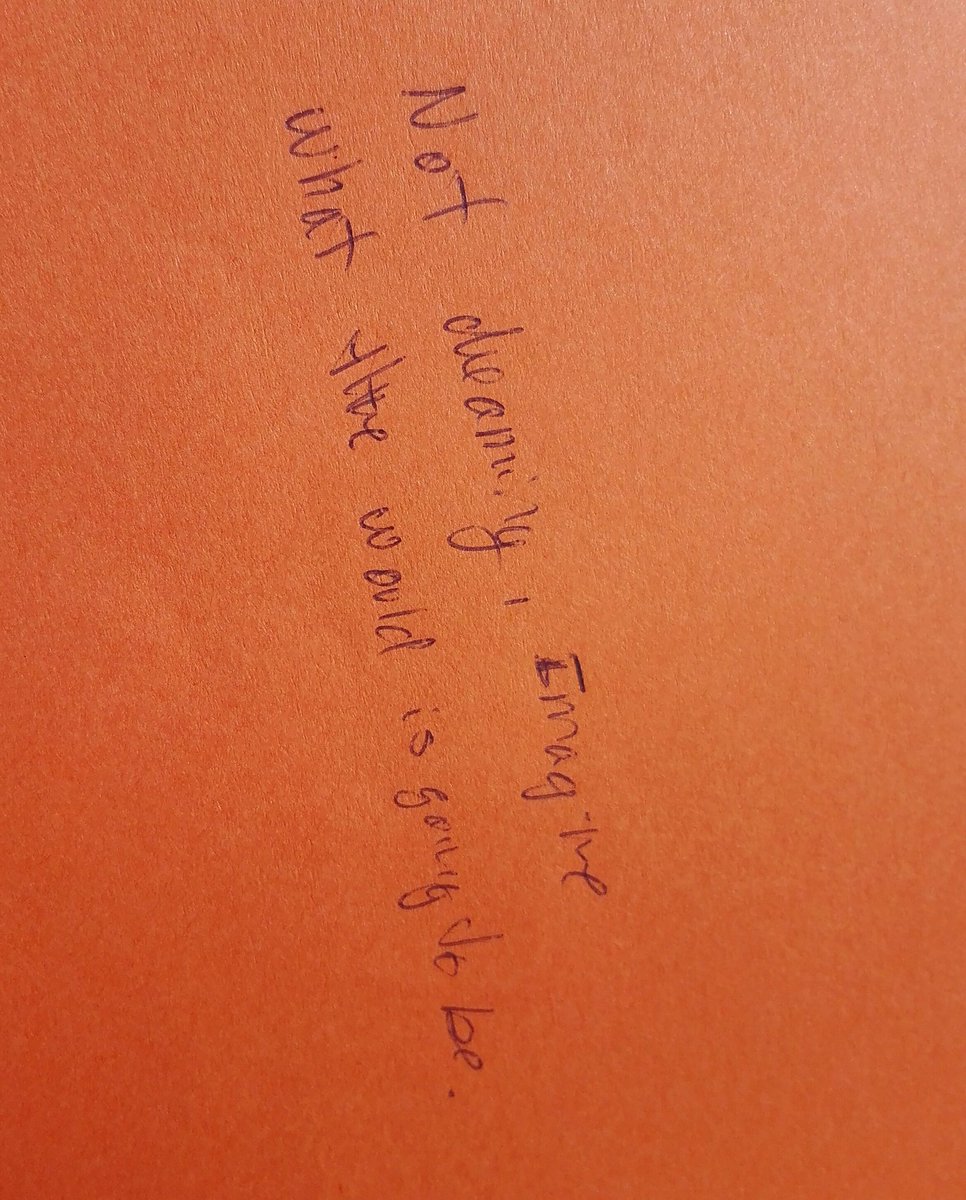 Not dearming, Imagine
What the would is going to be.